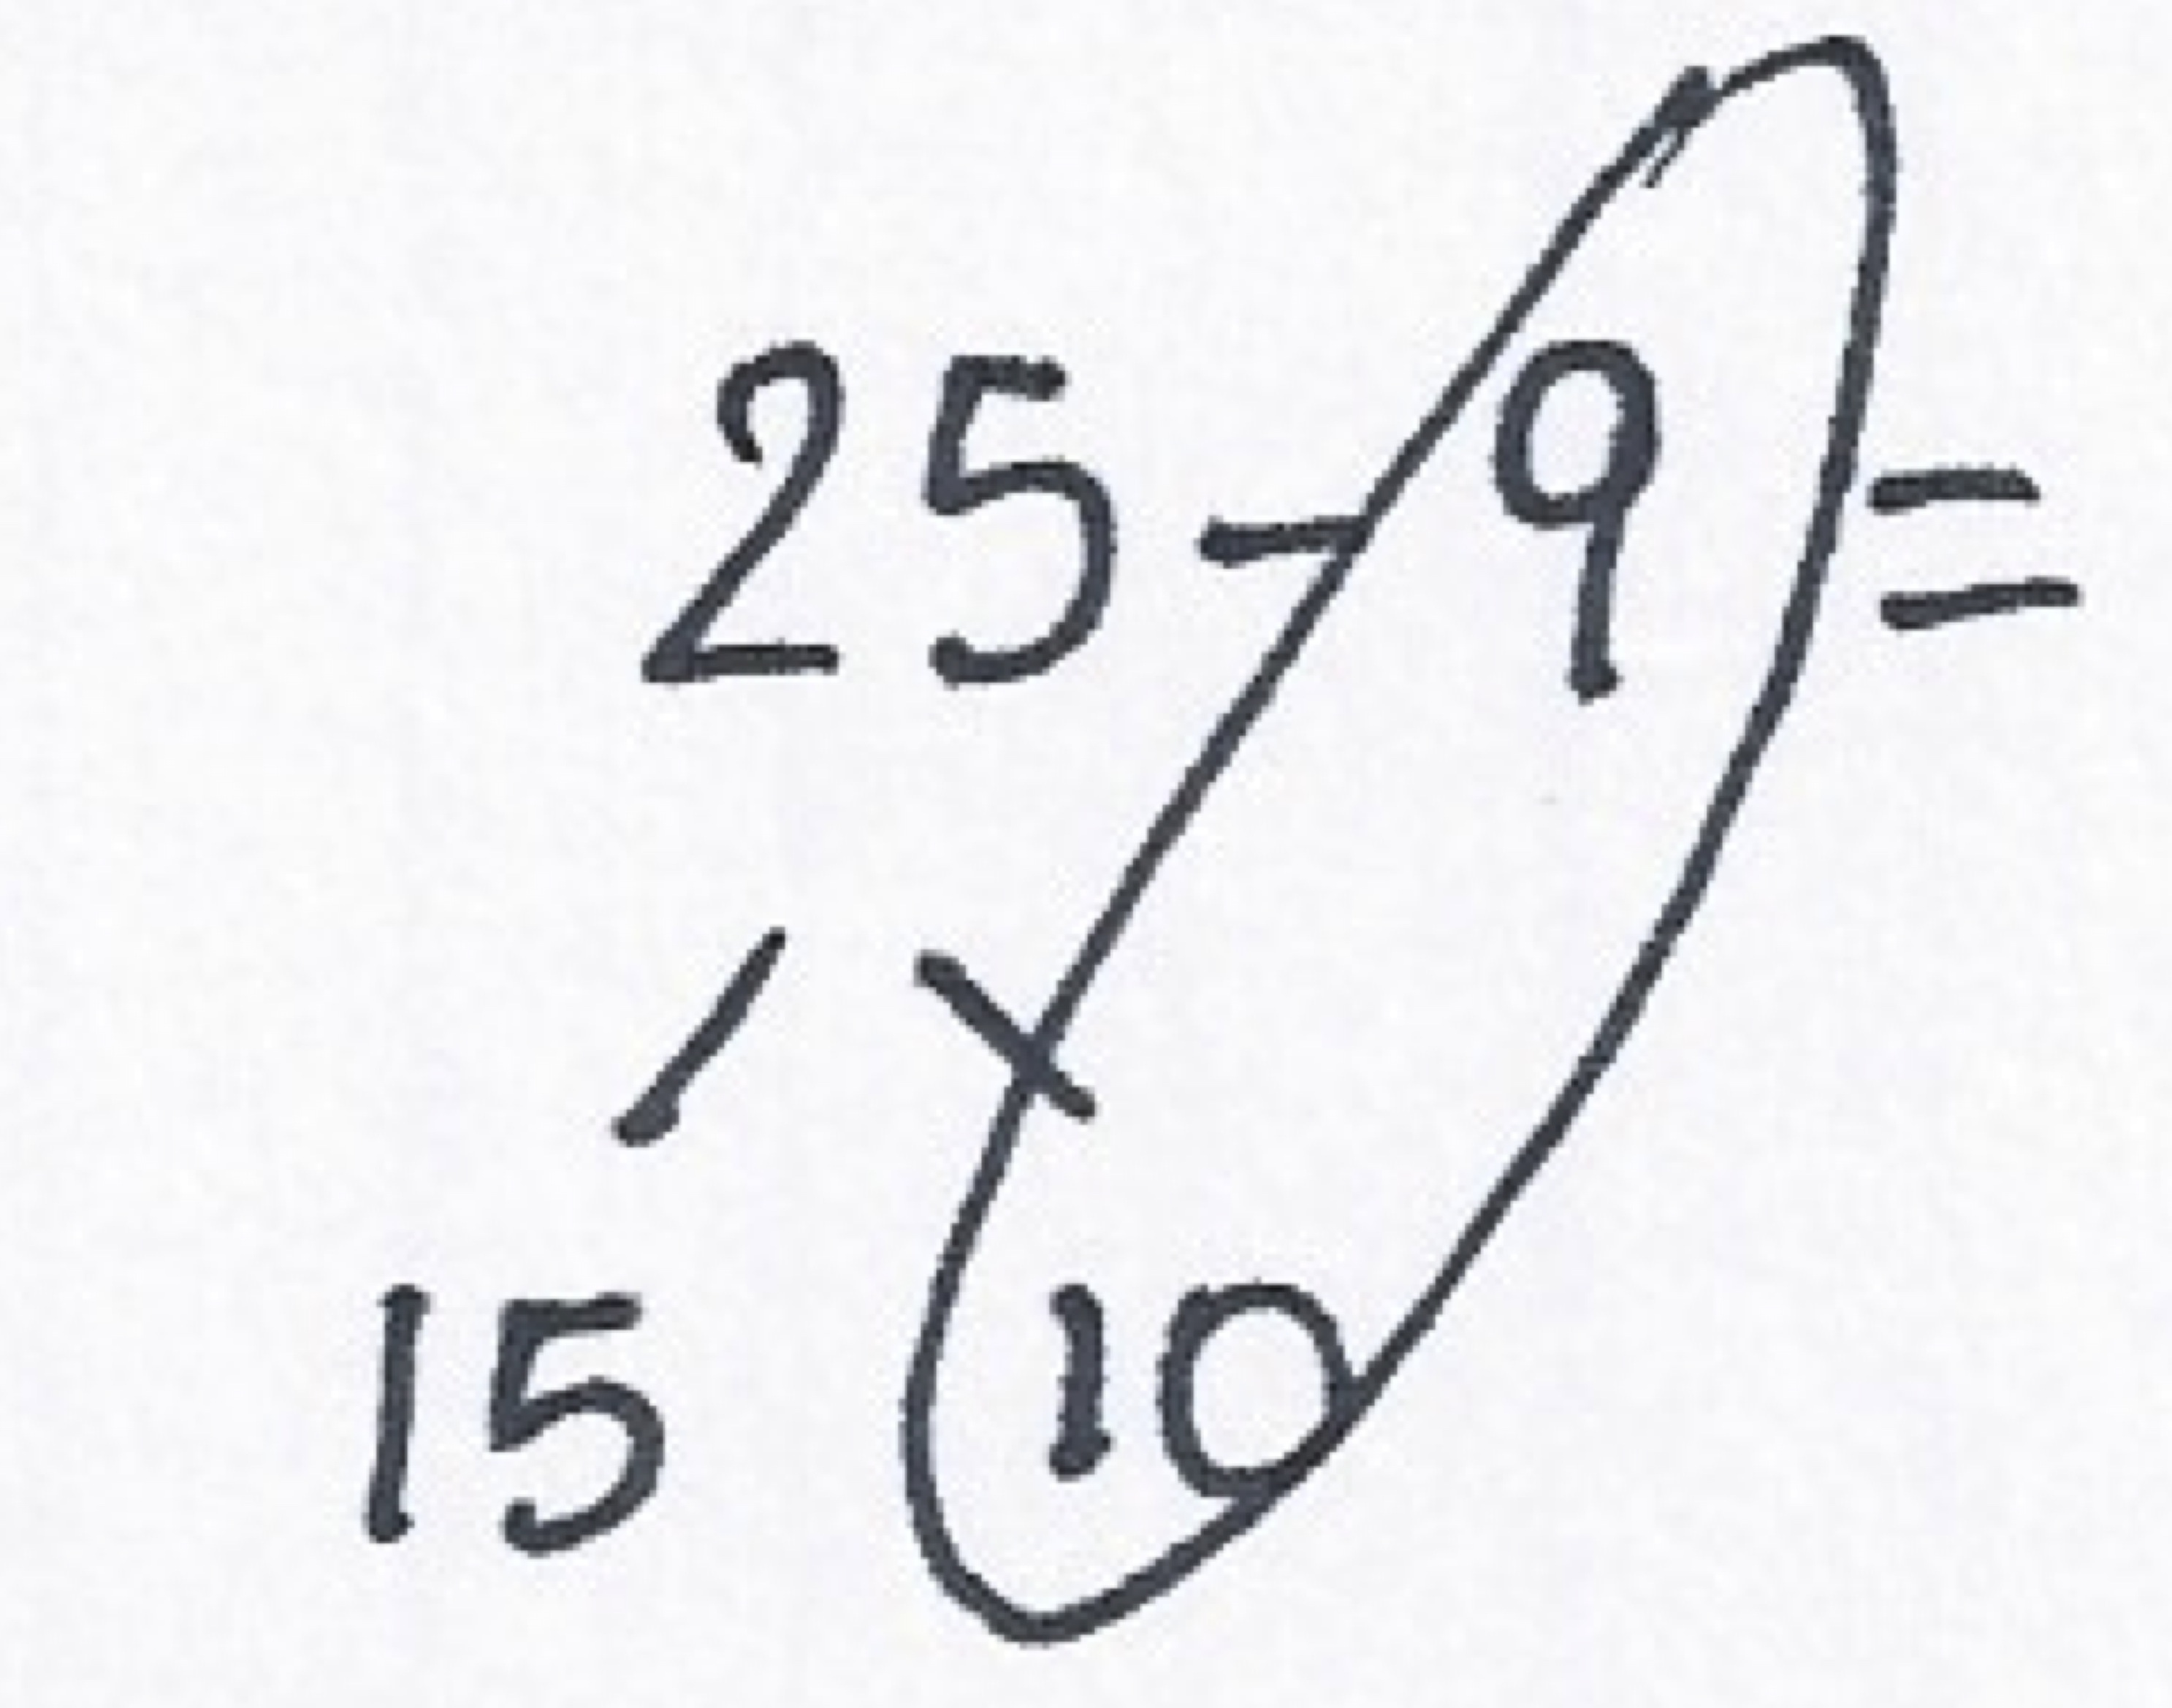 25-9=
15 10